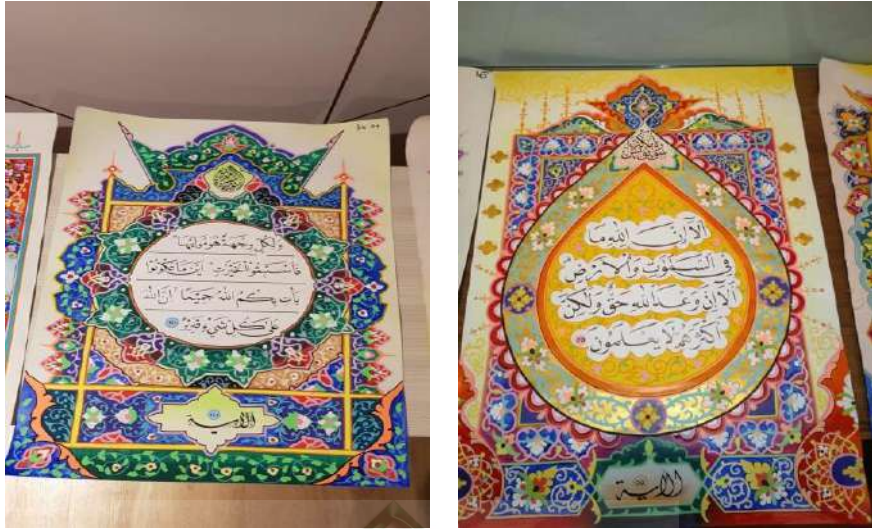 وَلِكُلٍّ وِجْهَةٌ هُوَ مُوَلِّيهَا
فَاسْتَبِقُوا الْخَيْرَاتِ أَيْنَ مَا تَكُونُوا
يَأْتِ بِكُمُ اللَّهُ جَمِيعًا إِنَّ اللَّهَ
عَلَى كُلِّ شَيْءٍ قَدِيرٌ
الآية
أَلَا إِنَّ لِلَّهِ مَا
فِي السَّمَاوَاتِ وَالْأَرْضِ
أَلَا إِنَّ وَعْدَ اللَّهِ حَقٌّ وَلَكِنَّ
أَكْثَرَهُمْ لَا يَعْلَمُونَ ٥٥
الآية